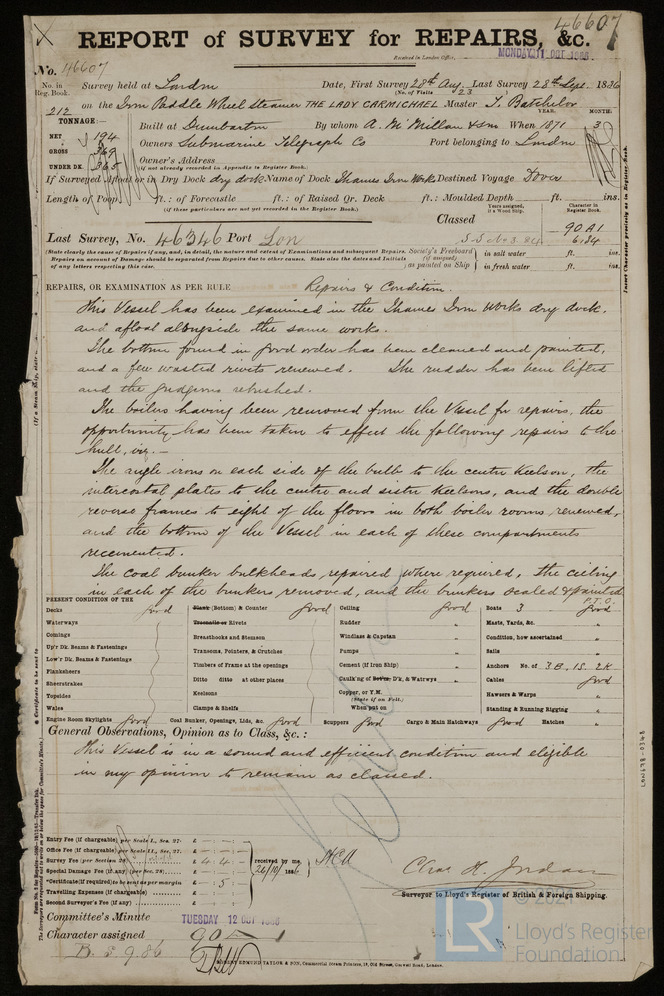 46607
REPORT of SURVEY for REPAIRS, &c.
Received in London Office,
MONDAY 11 OCT 1886
No. 46607
No. in Reg. Book. Survey held at London Date, First Survey 28th Aug. Last Survey 28th Sept. 1886
(No. of Visits 23
212 on the Iron Paddle Wheel Steamer THE LADY CARMICHAEL Master T. Batchelor
TONNAGE:— YEAR. MONTH.
Built at Dumbarton By whom A. McMillan & Son When 1871 3
NET 194
GROSS 369 Owners Submarine Telegraph Co Port belonging to London
UNDER DK. 365 Owner's Address
(if not already recorded in Appendix to Register Book.)
If Surveyed Afloat or in Dry Dock dry dock Name of Dock Thames Iron Works Destined Voyage Dover
Length of Poop ft.: of Forecastle ft.: of Raised Qr. Deck ft.: Moulded Depth ft. ins.
(if these particulars are not yet recorded in the Register Book.)
Years assigned, if a Wood Ship. Character in Register Book.
Classed 90 A1
Last Survey, No. 46346 Port Lon 6.84
(State clearly the cause of Repairs if any, and, in detail, the nature and extent of Examinations and subsequent Repairs. Repairs on account of Damage should be separated from Repairs due to other causes. State also the dates and Initials of any letters respecting this case.
Society's Freeboard (if assigned) as painted on Ship
in salt water ft. ins.
in fresh water ft. ins.
REPAIRS, OR EXAMINATION AS PER RULE Repairs & Condition.
This Vessel has been examined in the Thames Iron Works dry dock,
and afloat alongside the same works.
The bottom found in good order has been cleaned and painted,
and a few wasted rivets renewed. The rudder has been lifted
and the gudgeons rebushed.
The boilers having been removed from the Vessel for repairs, the
opportunity has been taken to effect the following repairs to the
hull, viz.—
The angle irons on each side of the bulb to the centre keelson, the
intercostal plates to the centre and sister keelsons, and the double
reverse frames to eight of the floors in both boiler rooms renewed,
and the bottom of the Vessel in each of these compartments
recemented.
The coal bunker bulkheads repaired where required, the ceiling
in each of the bunkers removed, and the bunkers scaled & painted
P.T.O.
PRESENT CONDITION OF THE
Decks good
Waterways
Comings
Up'r Dk. Beams & Fastenings
Low'r Dk. Beams & Fastenings
Planksheers
Sheerstrakes
Topsides
Wales
Engine Room Skylights good
Blank (Bottom) & Counter good
Treenails or Rivets
Breasthooks and Stemson
Transoms, Pointers, & Crutches
Timbers of Frame at the openings
Ditto ditto at other places
Keelsons
Clamps & Shelfs
Coal Bunker, Openings, Lids, &c. good
Ceiling good
Rudder "
Windlass & Capstan "
Pumps "
Cement (if Iron Ship) "
Caulk'g of Bot'm, D'k, & Watrwys "
Copper, or Y.M.
(State if on Felt.)
When put on
Scuppers good Cargo & Main Hatchways good Hatches "
Boats 3 good
Masts, Yards, &c. "
Condition, how ascertained
Sails "
Anchors No. of 3 B. 1S. 2K
Cables good
Hawsers & Warps "
Standing & Running Rigging "
General Observations, Opinion as to Class, &c.:
This Vessel is in a sound and efficient condition and eligible
in my opinion to remain as classed.
Entry Fee (if chargeable) per Scale I., Sec. 27. £
Office Fee (if chargeable) per Scale II., Sec. 27. £
Survey Fee (per Section 28) £ 4 : 4 : -
Special Damage Fee (if any) (per Sec. 28) £
*Certificate (if required) to be sent as per margin £ - : 5 : -
Travelling Expenses (if chargeable) £
Second Surveyor's Fee (if any) £
received by me,
26/10/1886
Chas. H. Jordan
Surveyor to Lloyd's Register of British & Foreign Shipping.
Committee's Minute TUESDAY 12 OCT 1886
Character assigned 90 A 1
B. S. 9.86
ROBERT EDMUND TAYLOR & SON, Commercial Steam Printers, 19, Old Street, Goswell Road, London.
LR
Lloyd's Register
Foundation
LON678-0348